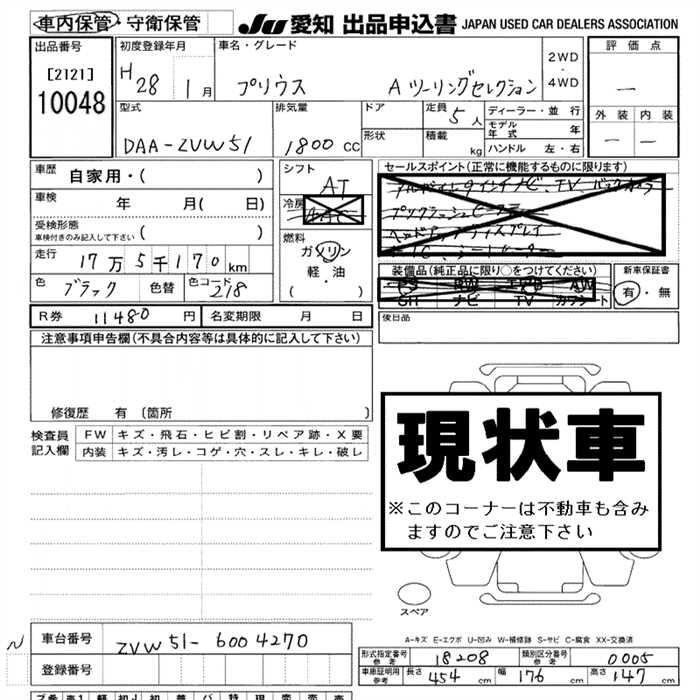 車内保管・守衛保管 JU 愛知 出品申込書 JAPAN USED CAR DEALERS ASSOCIATION
出品番号 初度登録年月 車名・グレード 2WD ・ 4WD 評価点
[2121] H28 1月 プリウス Aツーリングセレクション —
10048 型式 排気量 ドア 定員 5人 ディーラー・並 行 外装 内装
モデル年式 年
DAA-ZVW51 1800 CC 形状 積載 kg ハンドル 左・右 — —
車歴 自家用・( ) シフト AT セールスポイント(正常に機能するものに限ります)
車検 年 月( 日) 冷房
受検形態 車検付きのみ記入して下さい ( ) 燃料
走行 17万5千170km ガソリン
軽・油 装備品(純正品に限り○をつけてください) 新車保証書
色 ブラック 色替 色コード 218 ( ・ ) SH ナビ TV カワシート 有・無
R券 11480 円 名変期限 月 日 後日品
注意事項申告欄(不具合内容等は具体的に記入して下さい)
修復歴 有〔箇所 〕
検査員記入欄 FW キズ・飛石・ヒビ割・リペア跡・X要
内装 キズ・汚レ・コゲ・穴・スレ・キレ・破レ
現状車
※このコーナーは不動車も含み
ますのでご注意下さい
スペア
A-キズ E-エクボ U-凹み W-補修跡 S-サビ C-腐食 XX-交換済
N 車台番号 ZVW51-6004270
形式指定番号 参考 18208 類別区分番号 参考 0005
登録番号 車庫証明用 参考 長さ 454 cm 幅 176 cm 高さ 147 cm